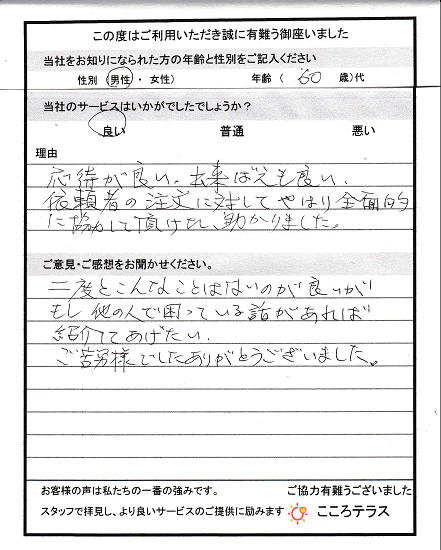 この度はご利用いただき誠に有難う御座いました
当社をお知りになられた方の年齢と性別をご記入ください
性別(男性・女性) 年齢( 60 歳)代
当社のサービスはいかがでしたでしょうか?
良い 普通 悪い
理由
応待が良い。出来ばえも良い、
依頼者の注文に対してやはり全面的
に協力して頂けたし、助かりました。
ご意見・ご感想をお聞かせください。
二度とこんなことはないのが良いが
もし他の人で困っている話があれば
紹介してあげたい。
ご苦労様でしたありがとうございました。
お客様の声は私たちの一番の強みです。 ご協力有難うございました
スタッフで拝見し、より良いサービスのご提供に励みます こころテラス